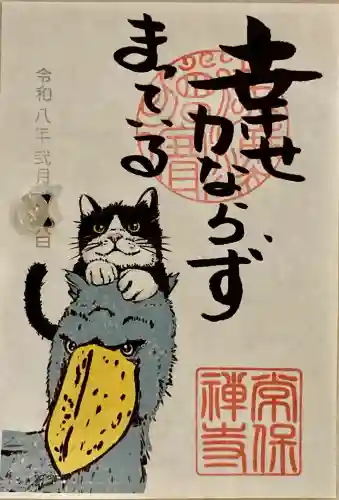 幸せ
カならず
まっている
令和八年弐月
日
常保
禅寺